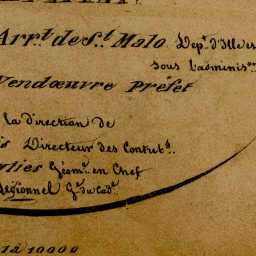 Arr.t de S.t Malo Dep.t d'Ille et
sous l'adminis.on
Vendœuvre Préfet
la direction de
Directeur des Contrib.s
Géom.e en Chef
Régionnel G.e du Cad.e
1 à 10000